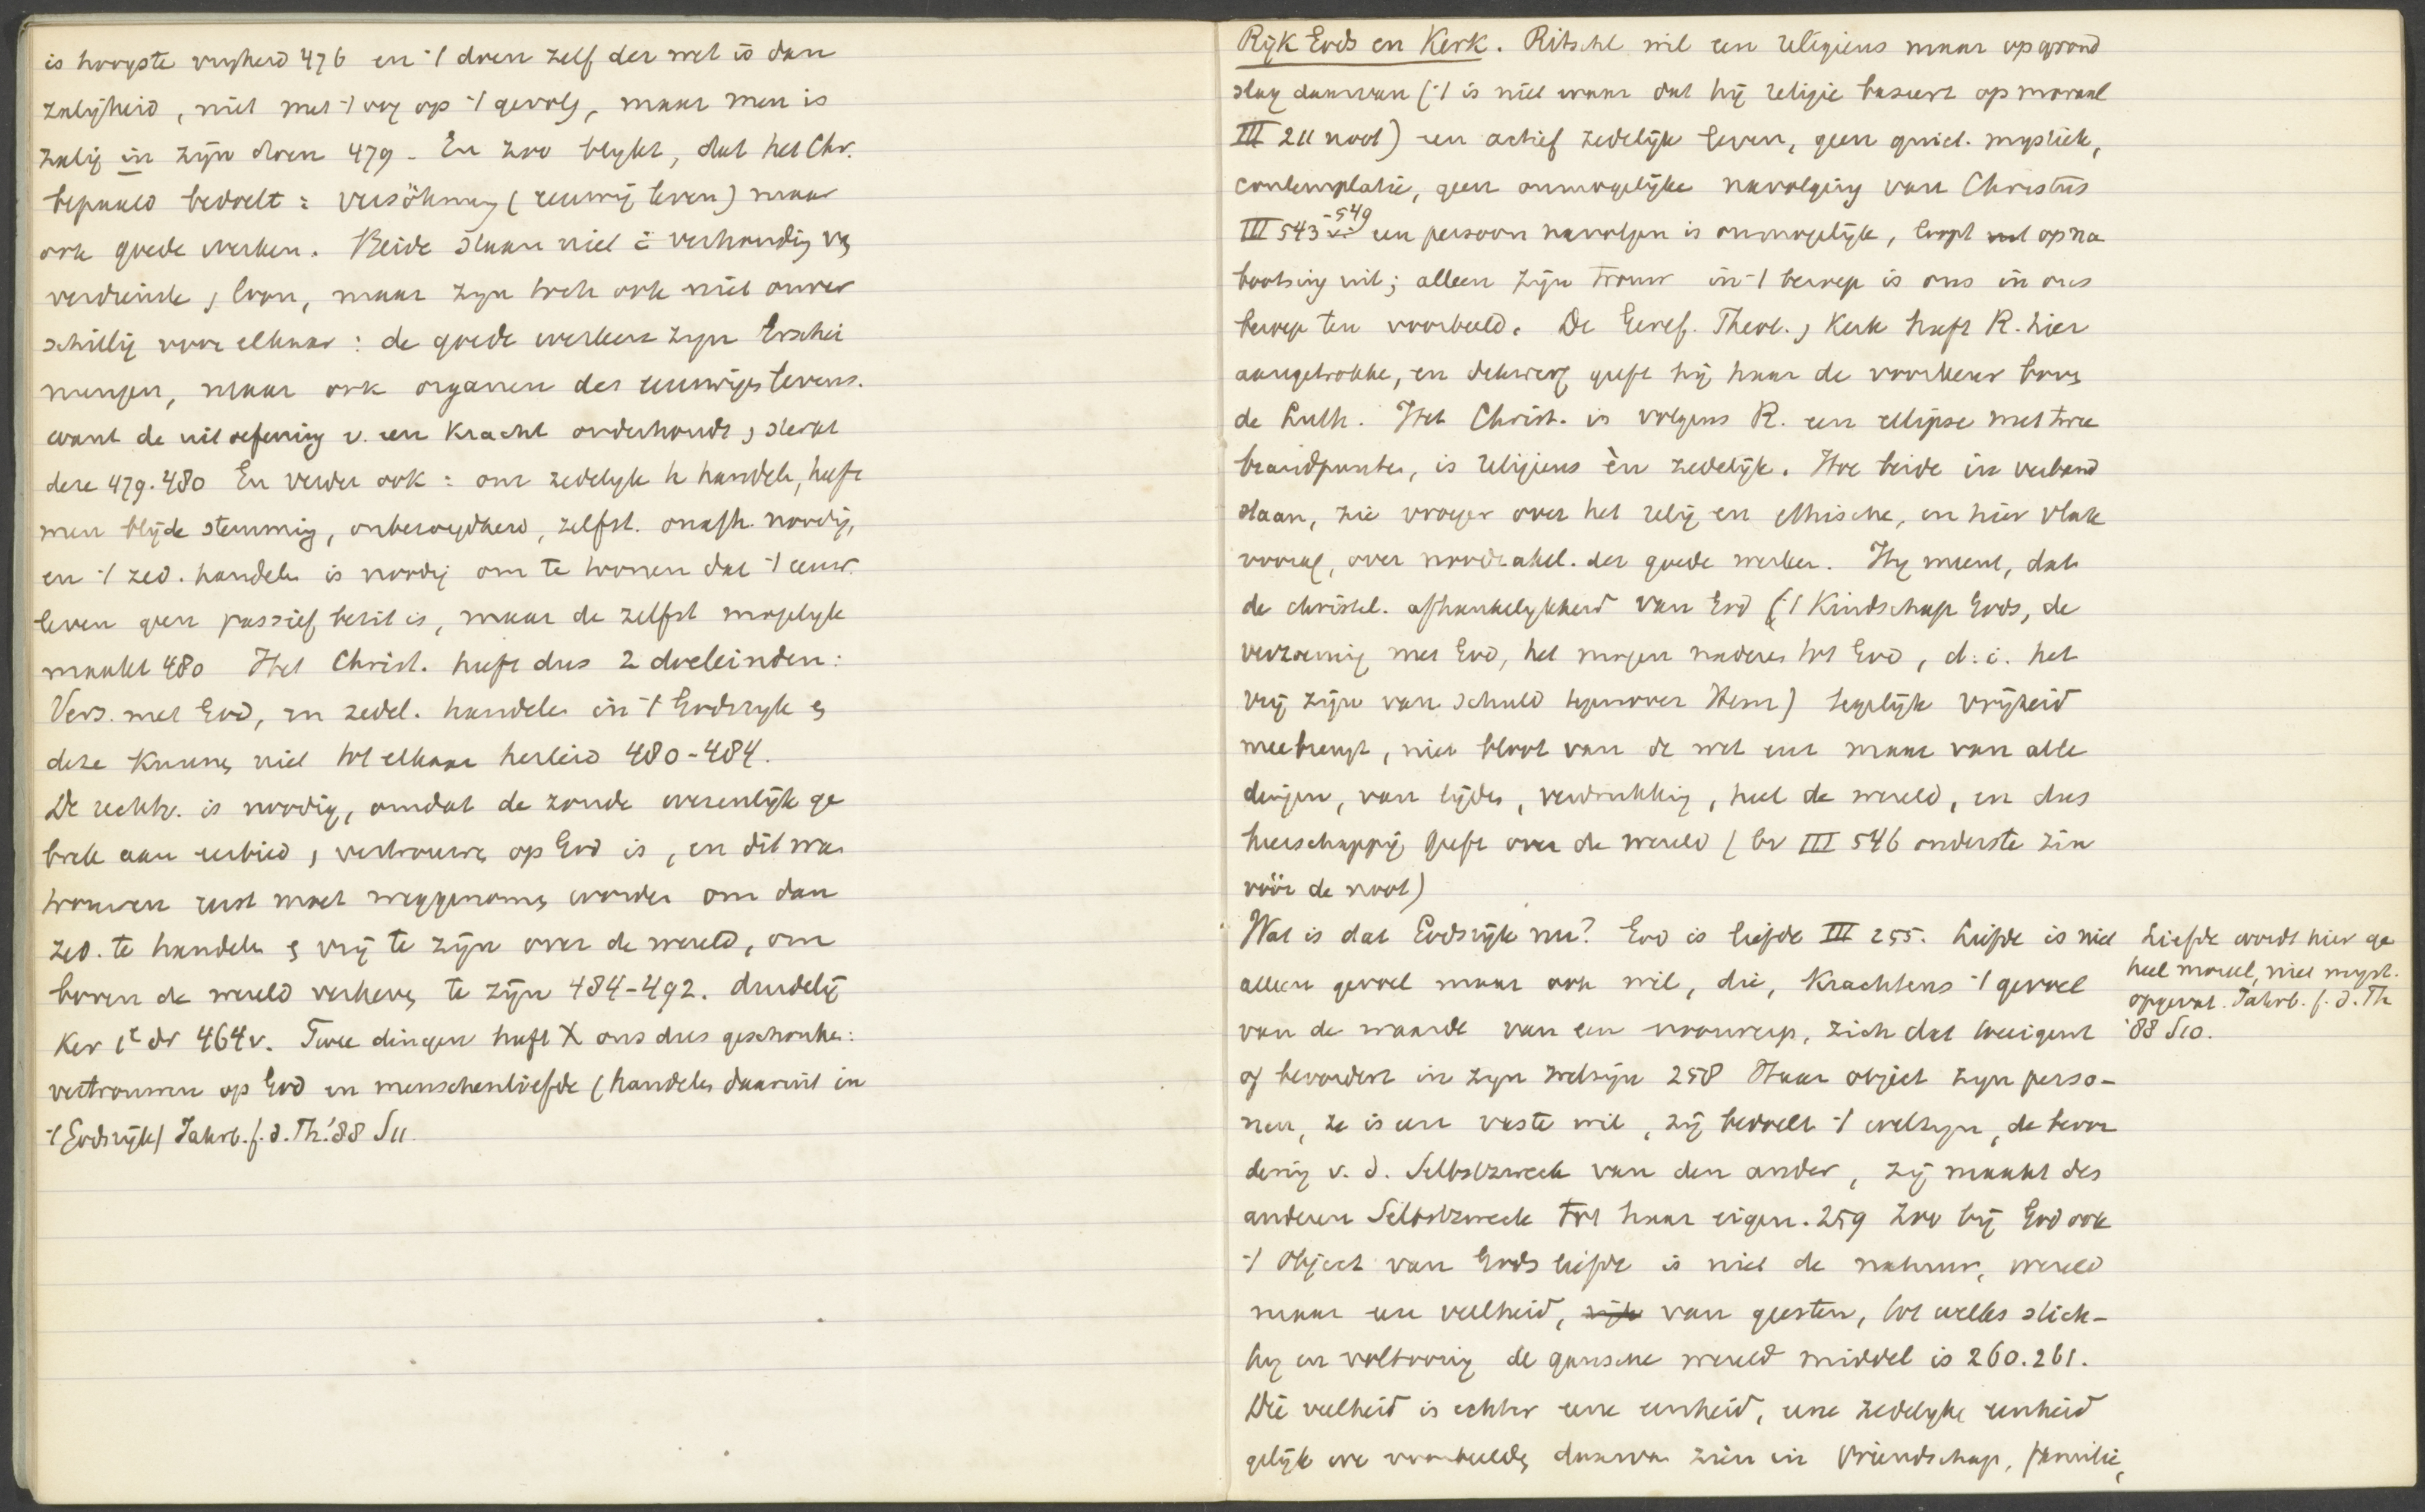 is hoogste vrijheid 476 en 't doen zelf der wet is dan
zaligheid, niet met 't oog op 't gevolg, maar men is
zalig in zijn doen 479 - En zoo blijkt, dat het Chr.
bepaald bedoelt: versöhnung (eeuwig leven) maar
ook goede werken. Beide staan niet i. verhouding v.
verdienste, loon, maar zijn toch ook niet onver
schillig voor elkaar: de goede werken zijn Erschei
nungen, maar ook organen des eeuwigen levens.
want de uitoefening v. een Kracht onderhoudt, sterkt
deze 479.480 En verder ook: om zedelijk te handelen, heeft
men blijde stemming, onbezorgdheid, zelfst. onafh. noodig,
en 't zed. handelen is noodig om te toonen dat 't eeuw.
leven geen passief bezit is, maar de zelfst mogelijk
maakt 480 Het Christ. heeft dus 2 doeleinden:
Vers. met God, en zedel. handelen in 't Godsrijk en
deze kunnen niet tot elkaar herleid 480-484.
De rechtv. is noodig, omdat de zonde wezenlijk ge
brek aan eerbied, vertrouwen op God is, en dit wan
trouwen eerst moet weggenomen worden om dan
zed. te handelen en vrij te zijn over de wereld, om
boven de wereld verheven te zijn 484-492. duidelij
ker 1e dr 464v. Twee dingen heeft X ons dus geschonken:
vertrouwen op God en menschenliefde (handelen daaruit in
't Godsrijk) Jahrb. f. d. Th. '88 S11.
Rijk Gods en Kerk. Ritschl wil een religieus maar op grond
slag daarvan ('t is niet waar dat hij religie baseert op moraal
III 211 noot) een actief zedelijk leven, geen quiet. mystiek,
contemplatie, geen onmogelijke navolging van Christus
III 543-549 een persoon navolgen is onmogelijk, loopt op na
bootsing uit; alleen zijn trouw in 't beroep is ons in ons
beroep ten voorbeeld. De Geref. Theol., Kerk heeft R. hier
aangetrokken, en deswege geeft hij haar de voorkeur boven
de Luth. Het Christ. is volgens R. een ellipse met twee
brandpunten, is religieus èn zedelijk. Hoe beide in verband
staan, zie vroeger over het relig en ethische, en hier vlak
vooraf, over noodzakel. der goede werken. Hij meent, dat
de christel. afhankelijkheid van God ('t Kindschap Gods, de
verzoening met God, het mogen naderen tot God, d.i. het
vrij zijn van schuld tegenover Hem) tegelijk vrijheid
meebrengt, niet bloot van de wet enz maar van alle
dingen, van lijden, verdrukking, heel de wereld, en dus
heerschappij geeft over de wereld (bv III 546 onderste zin
vóór de noot)
Wat is dat Godsrijk nu? God is liefde III 255. Liefde is niet
alleen gevoel maar ook wil, die, krachtens 't gevoel
van de waarde van een voorwerp, zich dat toeeigent
of bevordert in zijn welzijn 258 Haar object zijn perso-
nen, ze is een vaste wil, zij bedoelt 't welzijn, de bevor
dering v. d. Selbstzweck van den ander, zij maakt des
anderen Selbstzweck tot haar eigen. 259 Zoo bij God ook
't Object van Gods liefde is niet de natuur, wereld
maar een veelheid, van geesten, tot welks stich-
ting en voltooiing de gansche wereld middel is 260.261.
Die veelheid is echter eene eenheid, eene zedelijke eenheid
gelijk we voorbeelden daarvan zien in vriendschap, familie,
Liefde wordt hier ge
heel moreel, niet myst.
opgevat. Jahrb. f. d. Th
'88 S10.